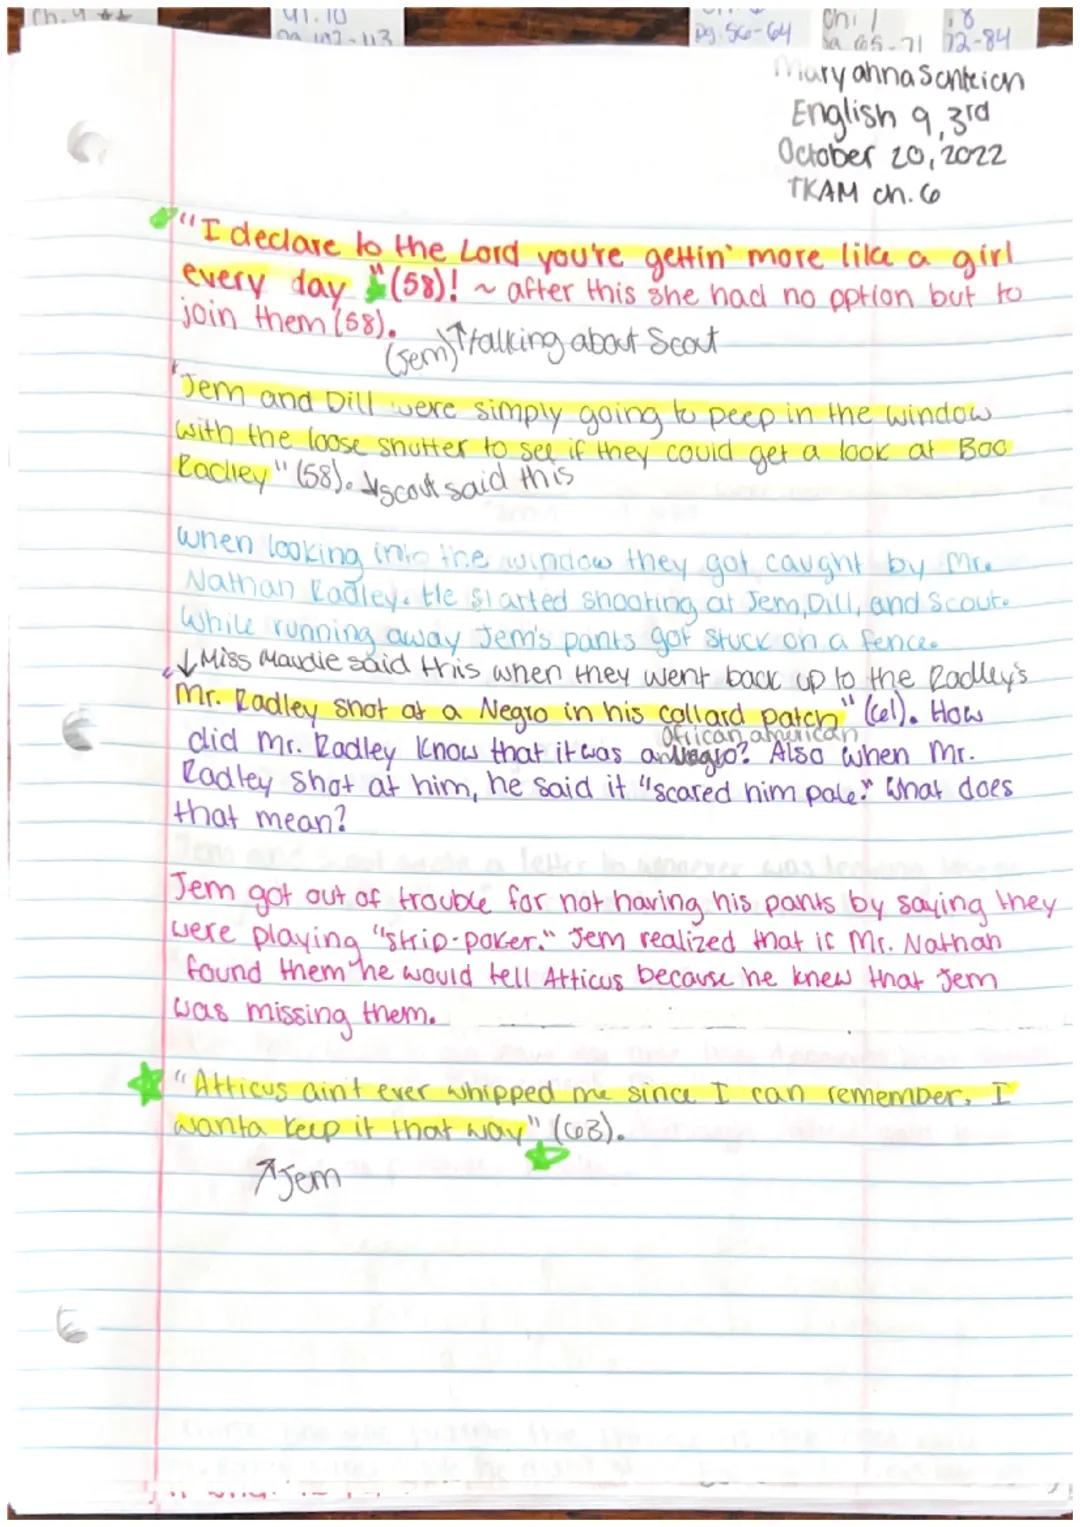 Ch. 4
41.10
pg 102-113
pg. 56-64
Ch 7
pg 65-71
.8
72-84
Maryanna
English 9, 3rd
October 20, 2022
TKAM ch. 6
"I declare to the Lord you're gettin' more like a girl
every day "(58)! ~ after this she had no option but to
join them (58).
(Jem) ↑talking about Scout
"Jem and Dill were simply going to peep in the window
with the loose shutter to see if they could get a look at Boo
Radley" (58). ↓scout said this
When looking into the window they got caught by Mr.
Nathan Radley. He started shooting at Jem, Dill, and Scout.
While running away Jem's pants got stuck on a fence.
↓Miss Maudie said this when they went back up to the Radley's
"Mr. Radley shot at a Negro in his collard patch" (61). How
african american
did Mr. Radley know that it was an Negro? Also when Mr.
Radley shot at him, he said it "scared him pale." What does
that mean?
Jem got out of trouble for not having his pants by saying they
were playing "strip-poker." Jem realized that if Mr. Nathan
found them he would tell Atticus because he knew that Jem
was missing them.
"Atticus ain't ever whipped me since I can remember. I
wanta keep it that way" (63).
↑Jem